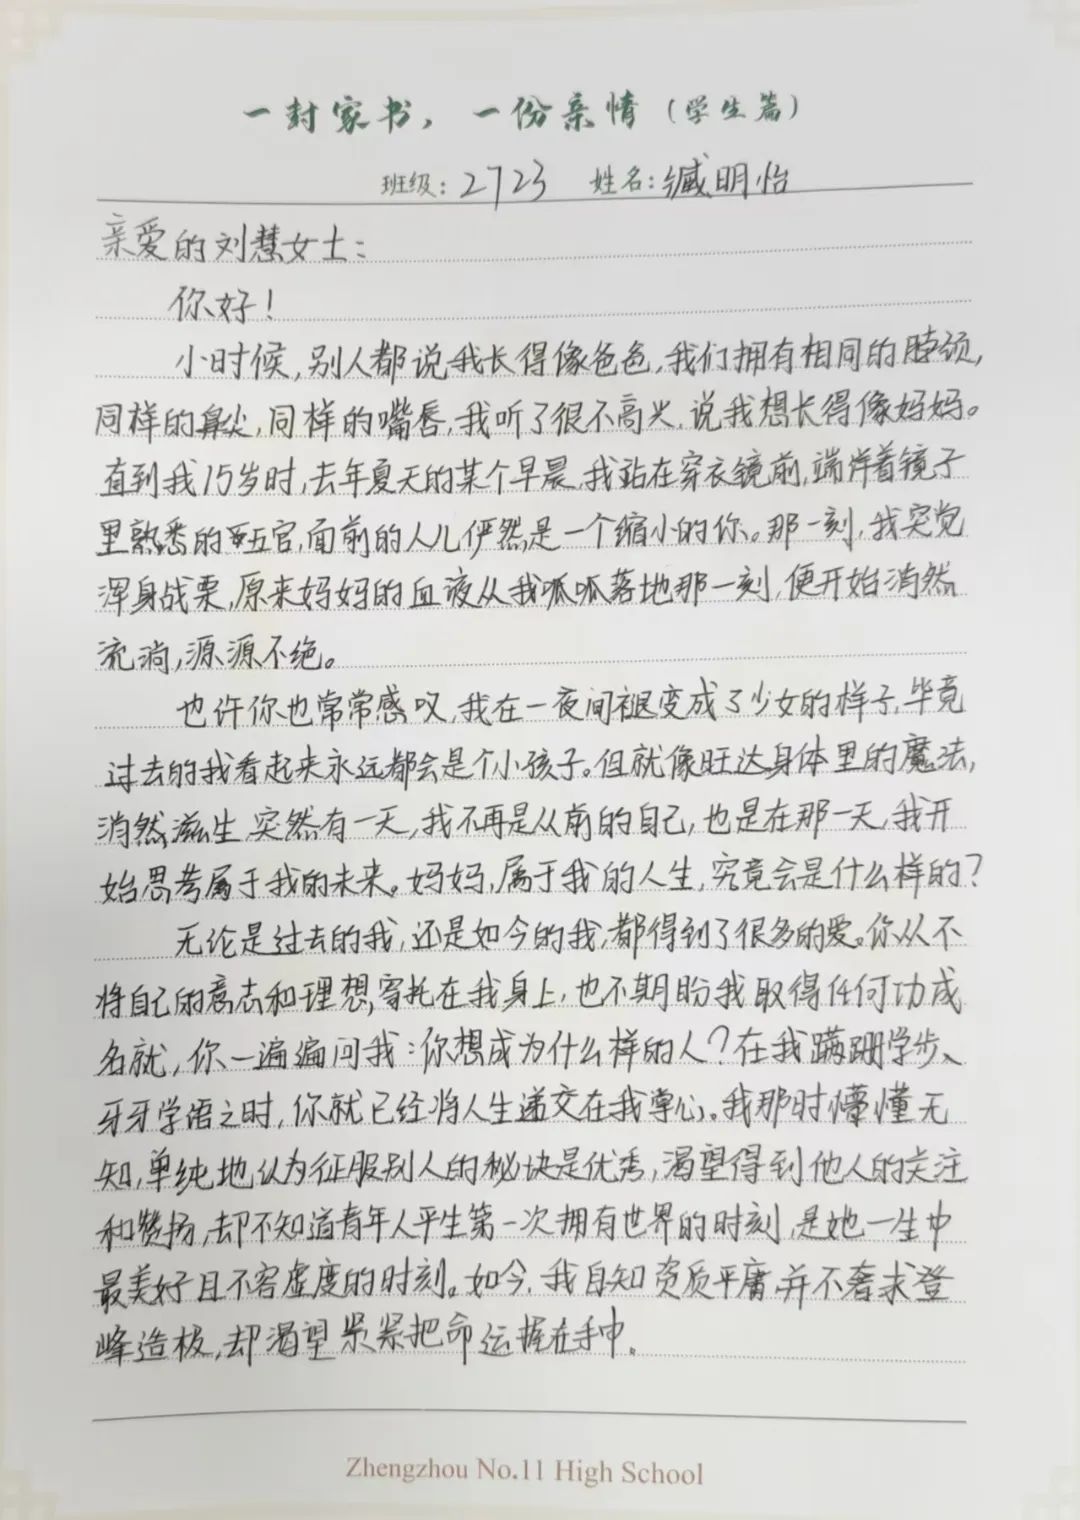 一封家书，一份亲情（学生篇）
班级：2723 姓名：臧明怡
亲爱的刘慧女士：
你好！
小时候，别人都说我长得像爸爸，我们拥有相同的脖颈，
同样的鼻尖，同样的嘴唇，我听了很不高兴，说我想长得像妈妈。
直到我15岁时，去年夏天的某个早晨，我站在穿衣镜前，端详着镜子
里熟悉的五官，面前的人儿俨然是一个缩小的你。那一刻，我突觉
浑身战栗，原来妈妈的血液从我呱呱落地那一刻，便开始消然
流淌，源源不绝。
也许你也常常感叹，我在一夜间褪变成了少女的样子，毕竟
过去的我看起来永远都会是个小孩子。但就像旺达身体里的魔法，
消然滋生，突然有一天，我不再是从前的自己，也是在那一天，我开
始思考属于我的未来。妈妈，属于我的人生，究竟会是什么样的？
无论是过去的我，还是如今的我，都得到了很多的爱。你从不
将自己的意志和理想寄托在我身上，也不期盼我取得任何功成
名就，你一遍遍问我：你想成为什么样的人？在我蹒跚学步、
牙牙学语之时，你就已经将人生递交在我掌心。我那时懵懂无
知，单纯地认为征服别人的秘诀是优秀，渴望得到他人的关注
和赞扬，却不知道青年人平生第一次拥有世界的时刻，是她一生中
最美好且不容虚度的时刻。如今，我自知资质平庸，并不奢求登
峰造极，却渴望紧紧把命运握在手中。
Zhengzhou No.11 High School